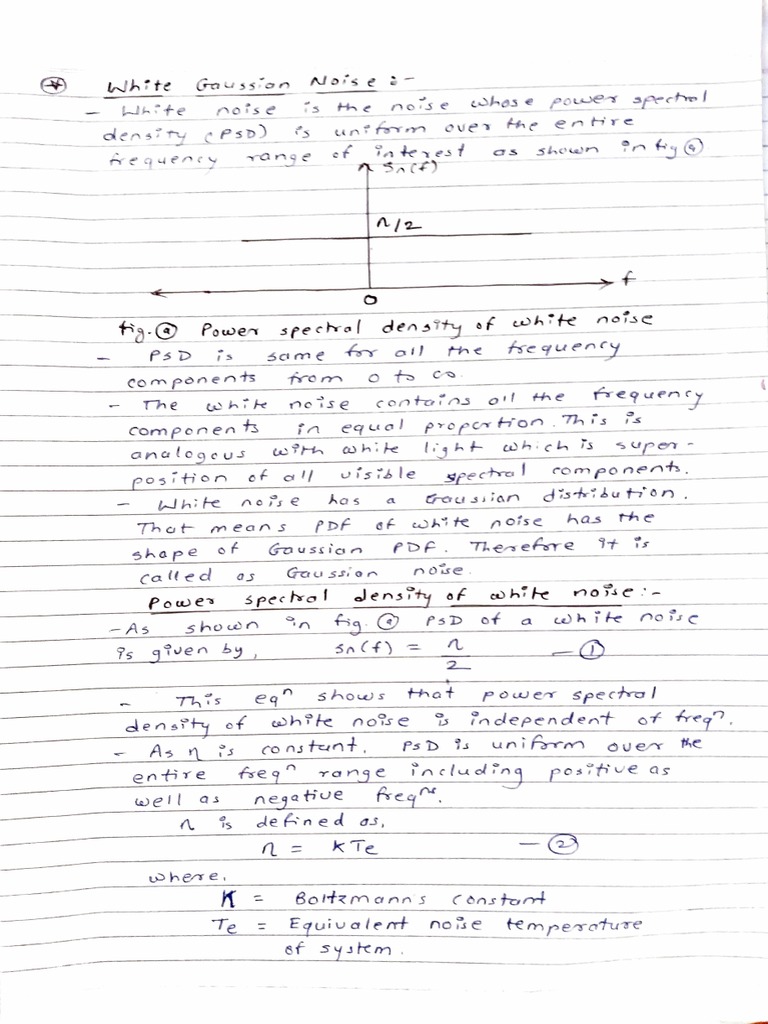 * White Gaussian Noise :-
- White noise is the noise whose power spectral
density (PSD) is uniform over the entire
frequency range of interest as shown in fig (a)
Sn(f)
n/2
f
0
fig. (a) Power spectral density of white noise
- PSD is same for all the frequency
components from 0 to ∞.
- The white noise contains all the frequency
components in equal proportion. This is
analogous with white light which is super-
position of all visible spectral components.
- White noise has a Gaussian distribution.
That means PDF of white noise has the
shape of Gaussian PDF. Therefore it is
called as Gaussian noise.
Power spectral density of white noise :-
- As shown in fig. (a) PSD of a white noise
is given by, Sn(f) = n/2 — (1)
- This eqⁿ shows that power spectral
density of white noise is independent of freqⁿ.
- As n is constant. PSD is uniform over the
entire freqⁿ range including positive as
well as negative freqⁿˢ.
n is defined as,
n = KTe — (2)
where,
K = Boltzmann's constant
Te = Equivalent noise temperature
of system.